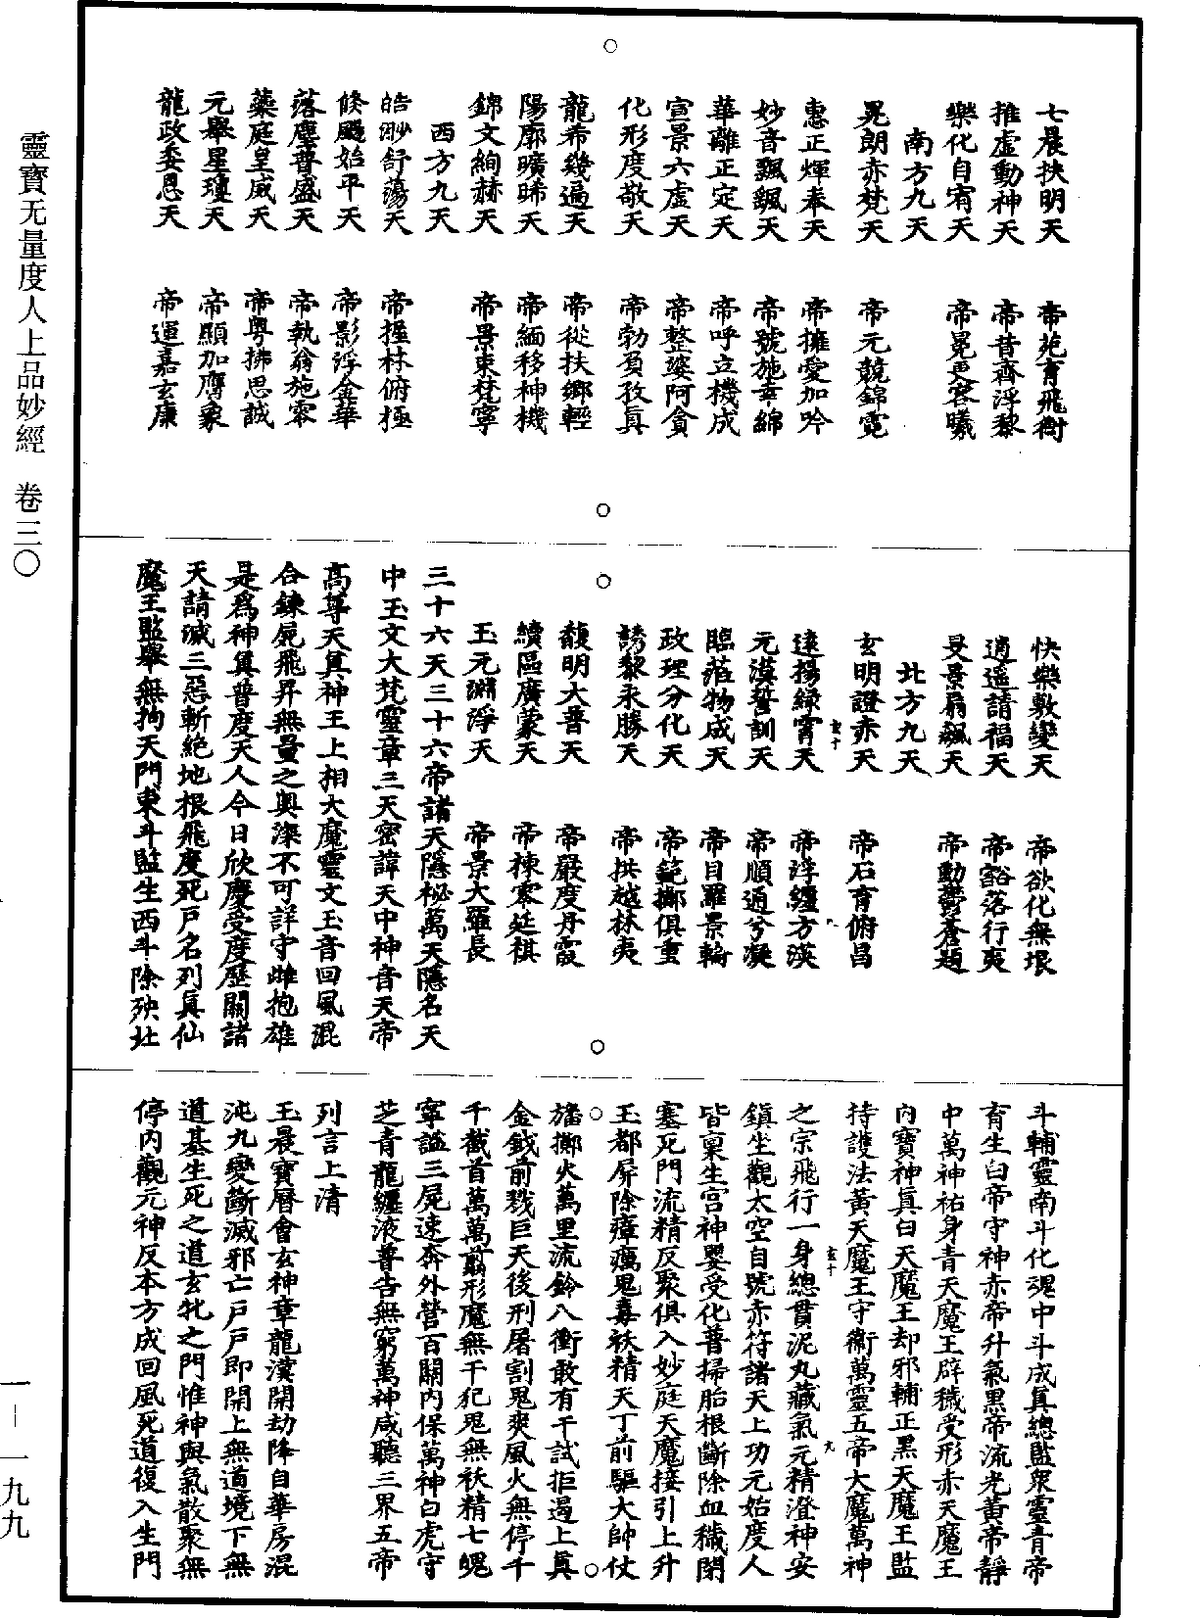 七晨扶明天　帝苑育飛衡
推虛動神天　帝昔齋浮黎
樂化自宥天　帝冕思容曦
南方九天
晃朗赤梵天　帝元競錦霓
惠正煇奉天　帝擁愛加吟
妙音飄颻天　帝號施幸綿
華離正定天　帝呼立機成
宣景六虛天　帝整婆阿貪
化形度敬天　帝勃負孜真
龍希幾遍天　帝從扶鄉輕
陽廓曠晞天　帝緬移神機
錦文絢赫天　帝景東梵寧
西方九天
皓渺舒蕩天　帝握林俯極
倏颺始平天　帝影浮金華
落塵普盛天　帝執翁施寥
藥庭皇威天　帝粵拂思誠
元舉星瓊天　帝顯加膺象
龍政委恩天　帝運嘉玄康
快樂敷變天　帝欲化無垠
逍遙請福天　帝豁落行夷
旻景扇飆天　帝動鬱蒼題
北方九天
玄明證赤天　帝石育俯昌
玄十
遠揚綠霄天　帝浮纏方漢
元漠誓訓天　帝順通兮凝
臨蒞物成天　帝目羅景輪
政理分化天　帝範擲俱重
誘黎永勝天　帝拱越林夷
馥明大普天　帝嚴度丹霞
續區廣蒙天　帝棟寥延祺
玉元淵淨天　帝景大羅長
三十六天三十六帝諸天隱祕萬天隱名天
中玉文大梵靈章三天密諱天中神音天帝
高尊天真神王上相大魔靈文玉音回風混
合鍊屍飛昇無量之奧深不可詳守雌抱雄
是為神真普度天人今日欣慶受度歷關諸
天請滅三惡斬絕地根飛度死戶名列真仙
魔王監舉無拘天門東斗監生西斗除殃北
斗輔靈南斗化魂中斗成真總監眾靈青帝
育生白帝守神赤帝升氣黑帝流光黃帝靜
中萬神祐身青天魔王辟穢受形赤天魔王
內寶神真白天魔王却邪輔正黑天魔王監
持護法黃天魔王守衛萬靈五帝大魔萬神
玄十　九
之宗飛行一身總貫泥丸藏氣元精澄神安
鎮坐觀太空自號赤符諸天上功元始度人
皆稟生宮神嬰受化普掃胎根斷除血穢閉
塞死門流精反聚俱入妙庭天魔接引上升
玉都屏除瘴癘鬼毒袄精天丁前驅大帥仗
旛擲火萬里流鈴八衝敢有干試拒遏上真
金鉞前戮巨天後刑屠割鬼爽風火無停千
千截首萬萬翦形魔無干犯鬼無袄精七魄
寧謐三屍速奔外營百關內保萬神白虎守
芝青龍纏液普告無窮萬神咸聽三界五帝
列言上清
玉晨寶曆會玄神章龍漢開劫降自華房混
沌九變斷滅邪亡戶戶即開上無道境下無
道基生死之道玄牝之門惟神與氣散聚無
停內觀元神反本方成回風死道復入生門
靈寶无量度人上品妙經　卷三〇
一－一九九